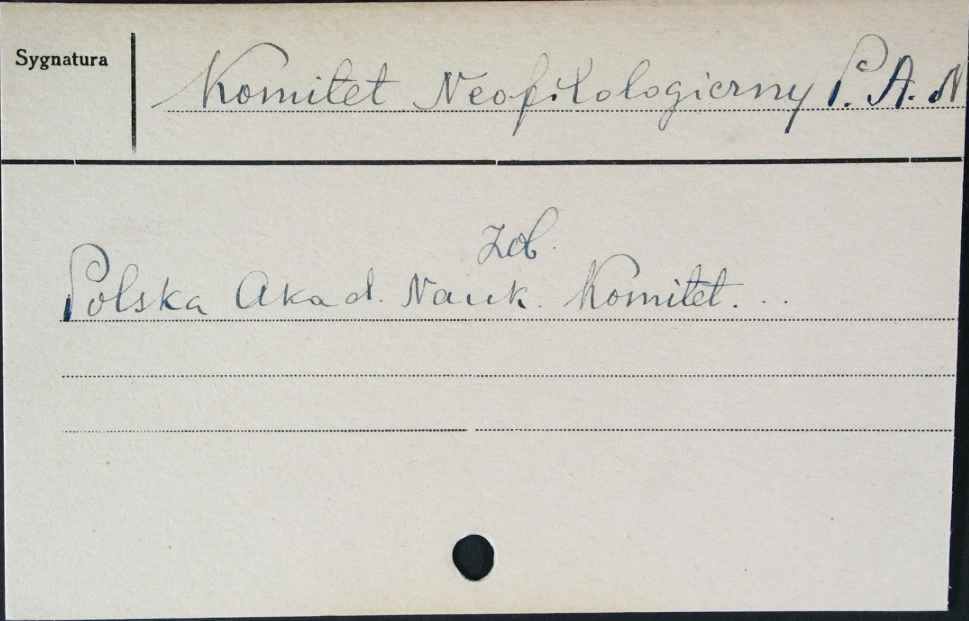 Sygnatura
Komitet Neofilologiczny P. A. N
Zob.
Polska Akad. Nauk. Komitet...